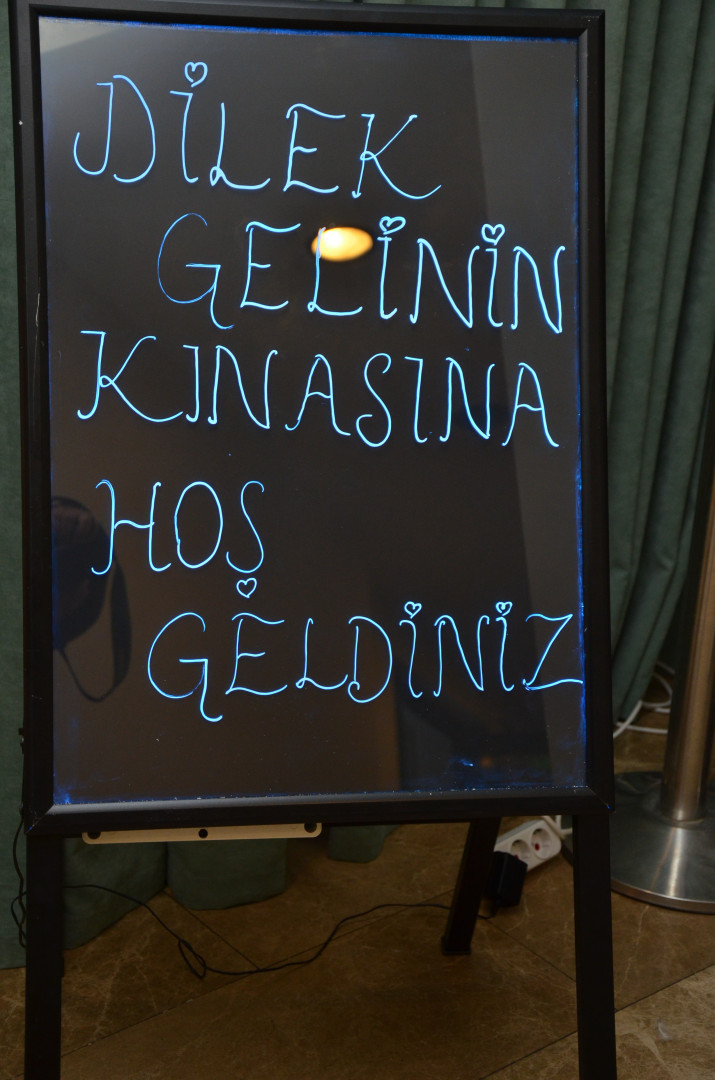 DİLEK
GELİNİN
KINASINA
HOS
GELDİNİZ